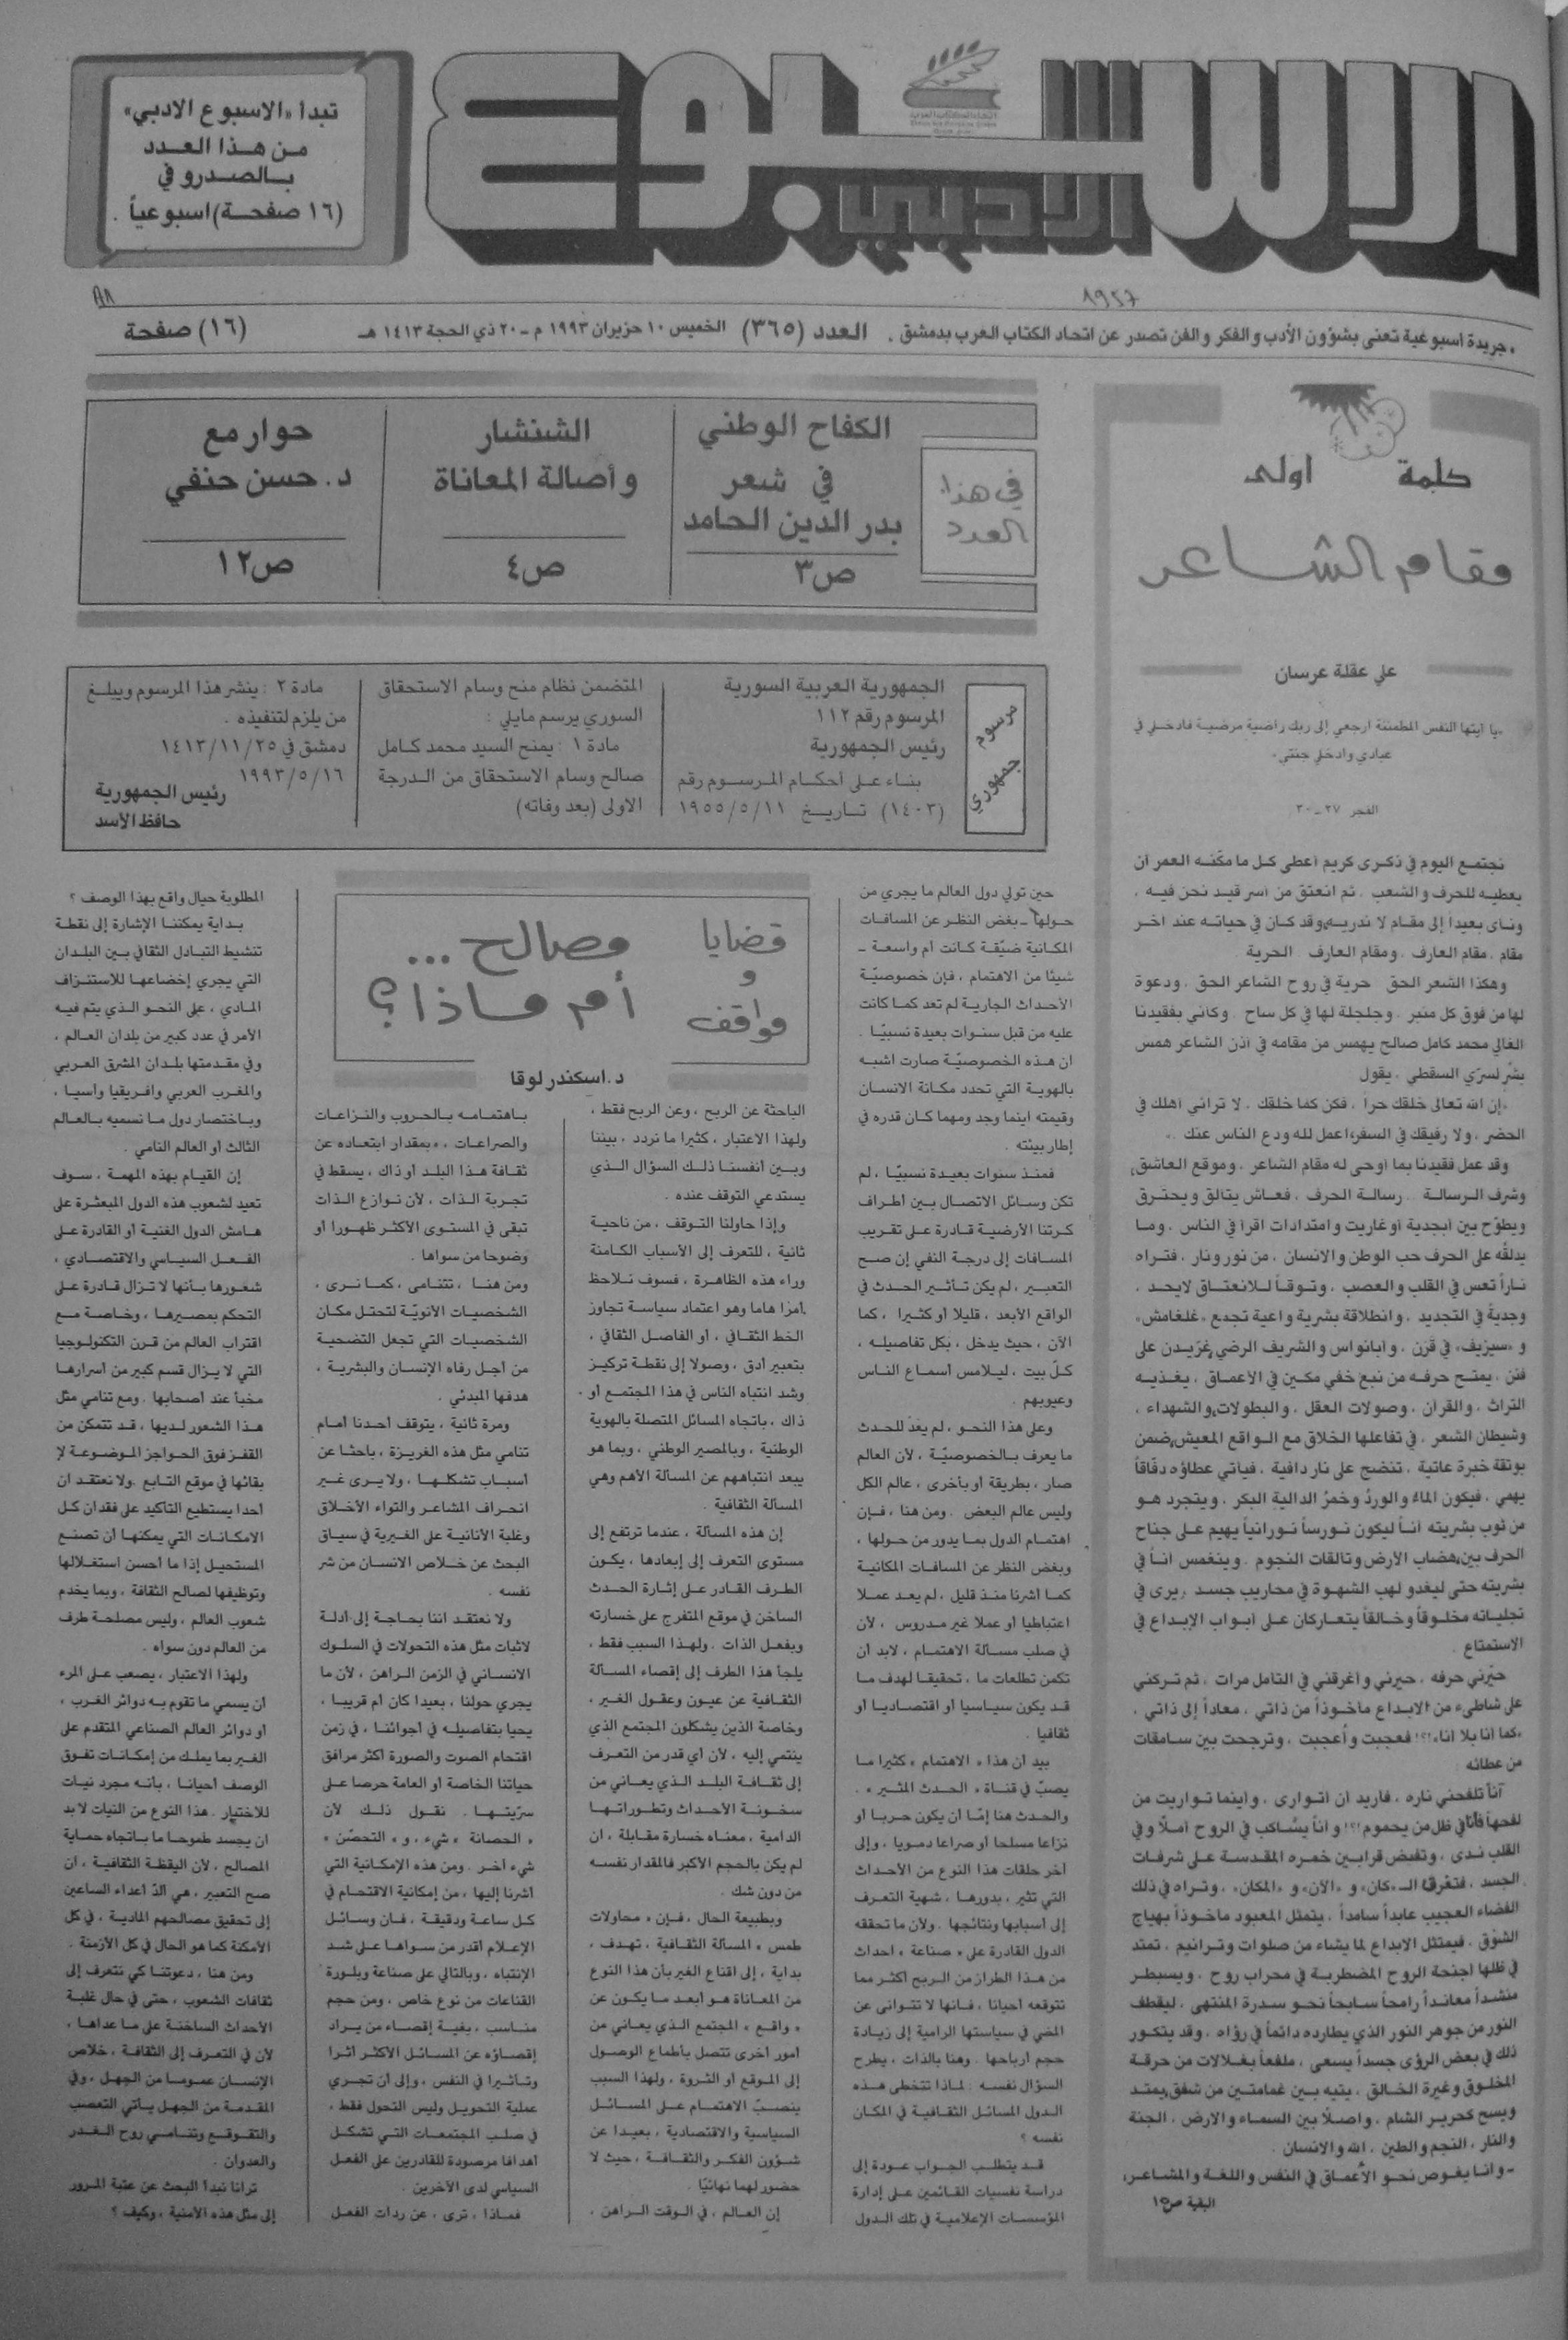 الاسبوع
الأدبي
تبدأ «الاسبوع الادبي»
من هذا العدد
بالصدرو في
(١٦ صفحة) اسبوعياً .
١٩٤٧
٨٨
جريدة اسبوعية تعنى بشؤون الأدب والفكر والفن تصدر عن اتحاد الكتاب العرب بدمشق . العدد (٣٦٥) الخميس ١٠ حزيران ١٩٩٣ م - ٢٠ ذي الحجة ١٤١٣ هـ (١٦) صفحة
كلمة اولى
مقام الشاعر
علي عقلة عرسان
«يا أيتها النفس المطمئنة ارجعي إلى ربك راضية مرضية فادخلي في
عبادي وادخلي جنتي»
الفجر ٢٧ - ٣٠
نجتمع اليوم في ذكرى كريم أعطى كل ما مكنه العمر أن
يعطيه للحرف والشعب . ثم انعتق من أسر قيد نحن فيه ،
ونأى بعيداً إلى مقام لا ندريه، وقد كان في حياته عند آخر
مقام ، مقام العارف . ومقام العارف : الحرية
وهكذا الشعر الحق حرية في روح الشاعر الحق . ودعوة
لها من فوق كل منبر . وجلجلة لها في كل ساح . وكأني بفقيدنا
الغالي محمد كامل صالح يهمس من مقامه في أذن الشاعر همس
بشر لسري السقطي . يقول
«إن الله تعالى خلقك حراً ، فكن كما خلقك . لا ترائي أهلك في
الحضر ، ولا رفيقك في السفر، اعمل لله ودع الناس عنك .»
وقد عمل فقيدنا بما أوحى له مقام الشاعر . وموقع العاشق،
وشرف الرسالة . رسالة الحرف . فعاش يتألق ويحترق
ويطوّح بين أبجدية أوغاريت وامتدادات اقرأ في الناس . وما
يدلقه على الحرف حب الوطن والانسان ، من نور ونار . فتراه
ناراً تعس في القلب والعصب . وتوقاً للانعتاق لايحد .
وجدية في التجديد . وانطلاقة بشرية واعية تجمع «غلغامش»
و «سيزيف» في قرن . وأبانواس والشريف الرضي يغردن على
فنن . يمتح حرفه من نبع خفي مكين في الأعماق . يغذيه
التراث . والقرآن . وصولات العقل . والبطولات، والشهداء .
وشيطان الشعر . في تفاعلها الخلاق مع الواقع المعيش، ضمن
بوتقة خبرة عاتية . تنضج على نار دافية . فيأتي عطاؤه دفاقاً
يهمي . فيكون الماء والورد وخمر الدالية البكر . ويتجرد هو
من ثوب بشريته آناً ليكون نورساً نورانياً يهيم على جناح
الحرف بين هضاب الأرض وتألقات النجوم . وينغمس آناً في
بشريته حتى ليغدو لهب الشهوة في محاريب جسد . يرى في
تجلياته مخلوقاً وخالقاً يتعاركان على أبواب الإبداع في
الاستمتاع .
حيّرني حرفه . حيرني وأغرقني في التأمل مرات . ثم تركني
على شاطىء من الابداع مأخوذاً من ذاتي . معاداً إلى ذاتي .
«كما أنا بلا أنا»!؟! فعجبت وأعجبت . وترجحت بين سامقات
من عطائه .
آناً تلفحني ناره . فأريد أن أتوارى . وأينما تواريت من
لفحها فأنا في ظل من يحموم !؟! وآناً يشاكب في الروح أملاً وفي
القلب ندى . وتفيض قرابين خمره المقدسة على شرفات
الجسد . فتغرق الـ «كان» و «الآن» و «المكان» . وتراه في ذلك
الفضاء العجيب عابداً سامداً . يتمثل المعبود مأخوذاً بهياج
الشوق . فيمتثل الابداع لما يشاء من صلوات وترانيم . تمتد
في ظلها أجنحة الروح المضطربة في محراب روح . ويسيطر
منشداً معانداً رامحاً سابحاً نحو سدرة المنتهى . ليقطف
النور من جوهر النور الذي يطارده دائماً في رؤاه . وقد يتكور
ذلك في بعض الرؤى جسداً يسعى . ملفعاً بغلالات من حرقة
المخلوق وغيرة الخالق . يتيه بين غمامتين من شفق، يمتد
ويسح كحرير الشام . واصلاً بين السماء والارض . الجنة
والنار . النجم والطين . الله والانسان .
- وأنا يغوص نحو الأعماق في النفس واللغة والمشاعر،
البقية ص١٥
في هذا
العدد
الكفاح الوطني
في شعر
بدر الدين الحامد
ص٣
الشنشار
وأصالة المعاناة
ص٤
حوار مع
د. حسن حنفي
ص١٢
مرسوم
جمهوري
الجمهورية العربية السورية
المرسوم رقم ١١٢
رئيس الجمهورية
بناء على أحكام المرسوم رقم
(١٤٠٣) تاريخ ١٩٥٥/٥/١١
المتضمن نظام منح وسام الاستحقاق
السوري يرسم مايلي :
مادة ١ : يمنح السيد محمد كامل
صالح وسام الاستحقاق من الدرجة
الاولى (بعد وفاته)
مادة ٢ : ينشر هذا المرسوم ويبلغ
من يلزم لتنفيذه .
دمشق في ١٤١٣/١١/٢٥
١٩٩٣/٥/١٦
رئيس الجمهورية
حافظ الأسد
قضايا
و
مواقف
مصالح ...
أم ماذا؟
د. اسكندر لوقا
حين تولي دول العالم ما يجري من
حولها - بغض النظر عن المسافات
المكانية ضيّقة كانت أم واسعة -
شيئا من الاهتمام ، فإن خصوصيّة
الأحداث الجارية لم تعد كما كانت
عليه من قبل سنوات بعيدة نسبيّا .
ان هذه الخصوصيّة صارت اشبه
بالهوية التي تحدد مكانة الانسان
وقيمته أينما وجد ومهما كان قدره في
إطار بيئته .
فمنذ سنوات بعيدة نسبيّا ، لم
تكن وسائل الاتصال بين أطراف
كرتنا الأرضية قادرة على تقريب
المسافات إلى درجة النفي إن صح
التعبير ، لم يكن تأثير الحدث في
الواقع الأبعد ، قليلا أو كثيرا ، كما
الآن ، حيث يدخل ، بكل تفاصيله ،
كلّ بيت ، ليلامس أسماع الناس
وعيوبهم .
وعلى هذا النحو ، لم يعد للحدث
ما يعرف بالخصوصيّة ، لأن العالم
صار ، بطريقة أو بأخرى ، عالم الكل
وليس عالم البعض . ومن هنا ، فإن
اهتمام الدول بما يدور من حولها ،
وبغض النظر عن المسافات المكانية
كما أشرنا منذ قليل ، لم يعد عملا
اعتباطيا أو عملا غير مدروس ، لأن
في صلب مسألة الاهتمام ، لابد أن
تكمن تطلعات ما ، تحقيقا لهدف ما
قد يكون سياسيا أو اقتصاديا أو
ثقافيا .
بيد أن هذا « الاهتمام » كثيرا ما
يصبّ في قناة « الحدث المثير » .
والحدث هنا إمّا أن يكون حربا أو
نزاعا مسلحا أو صراعا دمويا ، وإلى
آخر حلقات هذا النوع من الأحداث
التي تثير ، بدورها ، شهية التعرف
إلى أسبابها ونتائجها . ولأن ما تحققه
الدول القادرة على « صناعة » أحداث
من هذا الطراز من الربح أكثر مما
تتوقعه أحيانا ، فإنها لا تتوانى عن
المضي في سياستها الرامية إلى زيادة
حجم أرباحها . وهنا بالذات ، يطرح
السؤال نفسه : لماذا تتخطى هذه
الدول المسائل الثقافية في المكان
نفسه ؟
قد يتطلب الجواب عودة إلى
دراسة نفسيات القائمين على إدارة
المؤسسات الإعلامية في تلك الدول
الباحثة عن الربح ، وعن الربح فقط ،
ولهذا الاعتبار ، كثيرا ما نردد ، بيننا
وبين أنفسنا ذلك السؤال الذي
يستدعي التوقف عنده .
وإذا حاولنا التوقف ، من ناحية
ثانية ، للتعرف إلى الأسباب الكامنة
وراء هذه الظاهرة ، فسوف نلاحظ
أمرا هاما وهو اعتماد سياسة تجاوز
الخط الثقافي ، أو الفاصل الثقافي ،
بتعبير أدق ، وصولا إلى نقطة تركيز
وشد انتباه الناس في هذا المجتمع أو
ذاك ، باتجاه المسائل المتصلة بالهوية
الوطنية ، وبالمصير الوطني ، وبما هو
يبعد انتباههم عن المسألة الأهم وهي
المسألة الثقافية .
إن هذه المسألة ، عندما ترتفع إلى
مستوى التعرف إلى إبعادها ، يكون
الطرف القادر على إثارة الحدث
الساخن في موقع المتفرج على خسارته
وبفعل الذات . ولهذا السبب فقط ،
يلجأ هذا الطرف إلى إقصاء المسألة
الثقافية عن عيون وعقول الغير ،
وخاصة الذين يشكلون المجتمع الذي
ينتمي إليه ، لأن أي قدر من التعرف
إلى ثقافة البلد الذي يعاني من
سخونة الأحداث وتطوراتها
الدامية ، معناه خسارة مقابلة ، ان
لم يكن بالحجم الأكبر فالمقدار نفسه
من دون شك .
وبطبيعة الحال ، فإن « محاولات
طمس » المسألة الثقافية ، تهدف ،
بداية ، إلى اقناع الغير بأن هذا النوع
من المعاناة هو أبعد ما يكون عن
« واقع » المجتمع الذي يعاني من
أمور أخرى تتصل بأطماع الوصول
إلى الموقع أو الثروة ، ولهذا السبب
ينصبّ الاهتمام على المسائل
السياسية والاقتصادية ، بعيدا عن
شؤون الفكر والثقافة ، حيث لا
حضور لهما نهائيّا .
إن العالم ، في الوقت الراهن ،
باهتمامه بالحروب والنزاعات
والصراعات ، « بمقدار ابتعاده عن
ثقافة هذا البلد أو ذاك ، يسقط في
تجربة الذات ، لأن نوازع الذات
تبقى في المستوى الأكثر ظهورا أو
وضوحا من سواها .
ومن هنا ، تتنامى ، كما نرى ،
الشخصيات الأنويّة لتحتل مكان
الشخصيات التي تجعل التضحية
من أجل رفاه الإنسان والبشرية ،
هدفها المبدئي .
ومرة ثانية ، يتوقف أحدنا أمام
تنامي مثل هذه الغريزة ، باحثا عن
أسباب تشكلها ، ولا يرى غير
انحراف المشاعر والتواء الأخلاق
وغلبة الأنانية على الغيرية في سياق
البحث عن خلاص الانسان من شر
نفسه .
ولا نعتقد اننا بحاجة إلى أدلة
لاثبات مثل هذه التحولات في السلوك
الانساني في الزمن الراهن ، لأن ما
يجري حولنا ، بعيدا كان أم قريبا ،
يحيا بتفاصيله في أجوائنا ، في زمن
اقتحام الصوت والصورة أكثر مرافق
حياتنا الخاصة أو العامة حرصا على
سرّيتها . نقول ذلك لأن
« الحصانة » شيء ، و « التحصّن »
شيء آخر . ومن هذه الإمكانية التي
أشرنا إليها ، من إمكانية الاقتحام في
كل ساعة ودقيقة ، فان وسائل
الإعلام أقدر من سواها على شد
الإنتباه ، وبالتالي على صناعة وبلورة
القناعات من نوع خاص ، ومن حجم
مناسب ، بغية إقصاء من يراد
إقصاؤه عن المسائل الأكثر أثرا
وتأثيرا في النفس ، وإلى أن تجري
عملية التحويل وليس التحول فقط ،
في صلب المجتمعات التي تشكل
أهدافا مرصودة للقادرين على الفعل
السياسي لدى الآخرين .
فماذا ، ترى ، عن ردات الفعل
المطلوبة حيال واقع بهذا الوصف ؟
بداية يمكننا الإشارة إلى نقطة
تنشيط التبادل الثقافي بين البلدان
التي يجري إخضاعها للاستنزاف
المادي ، على النحو الذي يتم فيه
الأمر في عدد كبير من بلدان العالم ،
وفي مقدمتها بلدان المشرق العربي
والمغرب العربي وافريقيا وآسيا ،
وباختصار دول ما نسميه بالعالم
الثالث أو العالم النامي .
إن القيام بهذه المهمة ، سوف
تعيد لشعوب هذه الدول المبعثرة على
هامش الدول الغنية أو القادرة على
الفعل السياسي والاقتصادي ،
شعورها بأنها لا تزال قادرة على
التحكم بمصيرها ، وخاصة مع
اقتراب العالم من قرن التكنولوجيا
التي لا يزال قسم كبير من أسرارها
مخبأ عند أصحابها . ومع تنامي مثل
هذا الشعور لديها ، قد تتمكن من
القفز فوق الحواجز الموضوعة لإ
بقائها في موقع التابع . ولا نعتقد ان
أحدا يستطيع التأكيد على فقدان كل
الامكانات التي يمكنها أن تصنع
المستحيل إذا ما أحسن استغلالها
وتوظيفها لصالح الثقافة ، وبما يخدم
شعوب العالم ، وليس مصلحة طرف
من العالم دون سواه .
ولهذا الاعتبار ، يصعب على المرء
أن يسمي ما تقوم به دوائر الغرب ،
أو دوائر العالم الصناعي المتقدم على
الغير بما يملك من إمكانات تفوق
الوصف أحيانا ، بأنه مجرد نيات
للاختيار . هذا النوع من النيات لا بد
ان يجسد طموحا ما باتجاه حماية
المصالح ، لأن اليقظة الثقافية ، ان
صح التعبير ، هي ألدّ أعداء الساعين
إلى تحقيق مصالحهم المادية ، في كل
الأمكنة كما هو الحال في كل الأزمنة .
ومن هنا ، دعوتنا كي نتعرف إلى
ثقافات الشعوب ، حتى في حال غلبة
الأحداث الساخنة على ما عداها ،
لأن في التعرف إلى الثقافة ، خلاص
الإنسان عموما من الجهل ، وفي
المقدمة من الجهل يأتي التعصب
والتقوقع وتنامي روح الغدر
والعدوان .
ترانا نبدأ البحث عن عتبة المرور
إلى مثل هذه الأمنية ، وكيف ؟